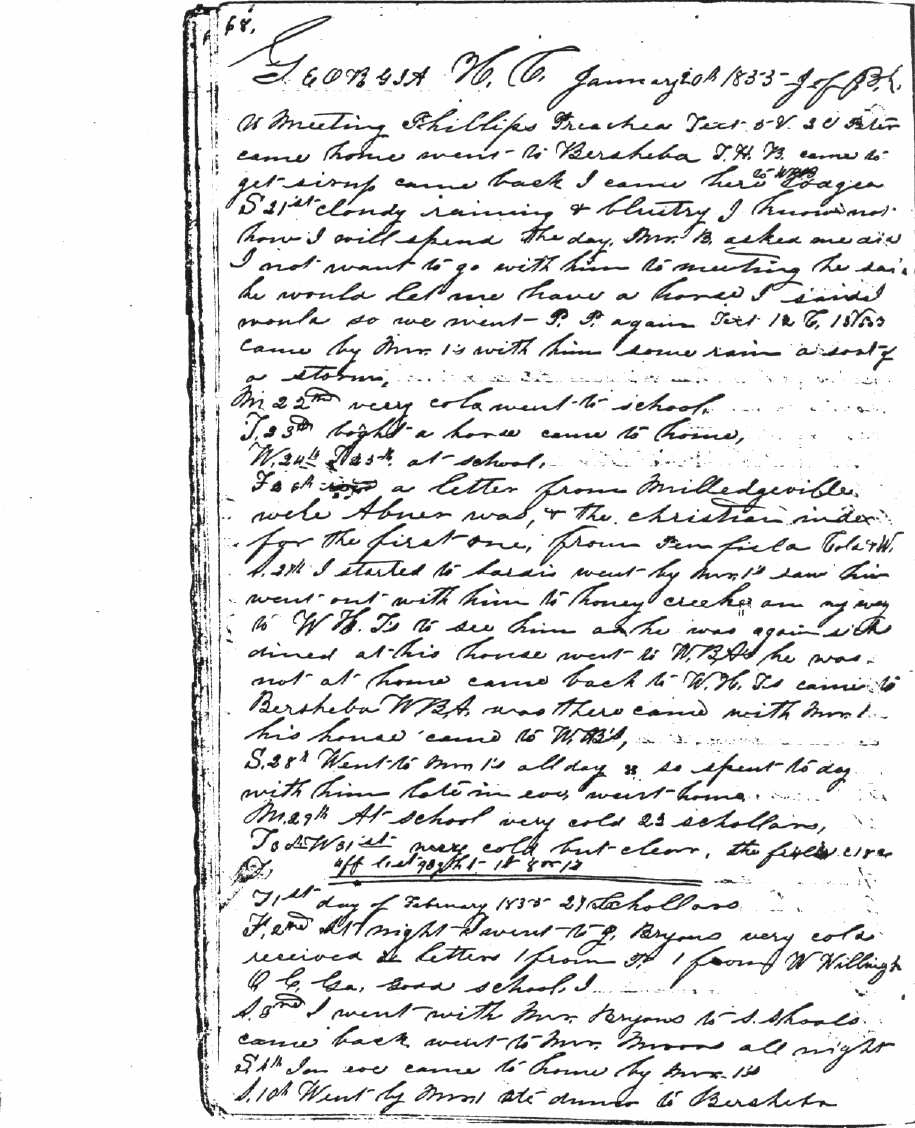 68.
GEORGIA H. C. January 20th 1855 J of B.
Meeting Phillips Preached Text 5 V. 2 C Peter
came home went to Bersheba T. H. B. came to
get sirup came back I came here to WBB Lodged
S 21st cloudy raining & blustry I know not
how I will spend the day. Mr. B. asked me did
I not want to go with him to meeting he said
he would let me have a horse I said I
would so we went P. P. again Text 12 C.
came by Mr. 1's with him some rain a sort of
a storm,
M. 22nd very cold went to school,
T. 23rd boght a horse came to home,
W. 24th T 25th at school,
F 26th a letter from Milledgeville
wele Abner was, & the christian index
for the first one, from Penfield Cold & W.
S. 27th I started to Sardis went by Mr. 1's saw him
went out with him to honey creek on my way
to W H. Ts to see him as he was again sick
dined at his house went to W. B. A's he was
not at home came back to W. H. Ts came to
Bersheba W B A. was there came with Mr. 1.
his house came to W. B's,
S. 28th Went to Mr. 1's all day so spent to day
with him late in eve, went home.
M. 29th At school very cold 23 schollars,
T 30th W 31st very cold but clear,
T. 1st day of February 1855 27 Schollars
F. 2nd At night I went to J. Bryans very cold
received 2 letters 1 from 1 from W Willingh
O C, Ga, Good school. I
S. 3rd I went with Mr. Bryans to S. Shoals
came back went to Mr. Moors all night
S 4th In eve came to home by Mr. 1's
S. 10th Went by Mr 1 dinner to Bersheba